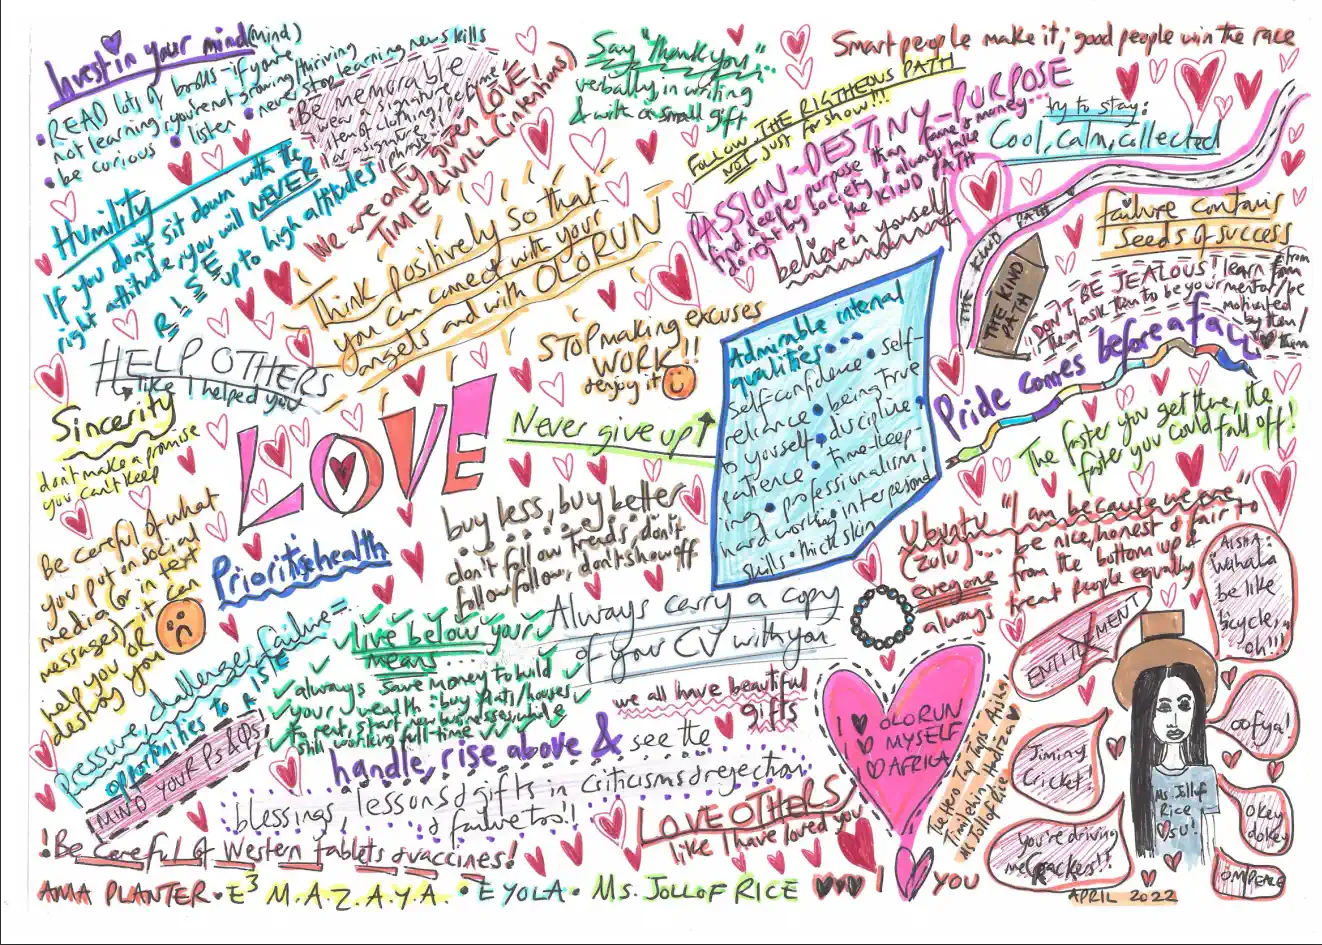 Invest in your mind (mind)
• READ lots of books - if you're
not learning, you're not growing/thriving
• be curious • listen • never stop learning new skills
Be memorable
wear a signature
item of clothing/perfume
or a signature
phrase!!
We are only given LOVE,
TIME & WILL (intentions)
Say "Thank you"...
verbally, in writing
& with a small gift
Smart people make it; good people win the race
FOLLOW THE RIGTHEOUS PATH
NOT just for show!!!
PASSION-DESTINY-PURPOSE
find deeper purpose than fame & money...
do right by society & always take
the KIND PATH
believe in yourself
try to stay:
Cool, calm, collected
THE KIND PATH
THE KIND
PATH
failure contains
seeds of success
"DON'T BE JEALOUS! learn from
them/ask them to be your mentor/be
motivated
by them/
them
Humility
If you don't sit down with the
right attitude, you will NEVER
R I S E up to high altitudes!
Think positively so that
you can connect with your
angels and with OLORUN
HELP OTHERS
like I helped you
STOP making excuses
WORK!!
& enjoy it
Admirable internal
qualities...
self-confidence • self-
reliance • being true
to yourself • discipline •
patience • time-keep-
ing • professionalism •
hard working • interpersonal
skills • thick skin
Pride comes before a fall
The faster you get there, the
faster you could fall off!
Sincerity
don't make a promise
you can't keep
LOVE
Never give up!
Be careful of what
you put on social
media (or in text
messages), it can
help you OR
destroy you
Prioritise health
buy less, buy better
don't follow trends, don't
follow follow, don't show off
Ubuntu "I am because we are"
(Zulu)... be nice, honest & fair to
everyone from the bottom up &
always treat people equally
Pressure, challenges, failure =
opportunities to RISE
MIND YOUR Ps & Qs!
live below your
means....
always save money to build
your wealth: buy flats/houses
to rent, start new businesses while
still working full-time
Always carry a copy
of your CV with you
we all have beautiful
gifts
handle, rise above & see the
blessings, lessons & gifts in criticisms & rejection
& failure too!!
LOVE OTHERS
like I have loved you
!Be Careful of Western tablets & vaccines!
I ♥ OLORUN
I ♥ MYSELF
I ♥ AFRICA
The Hero Top Tops Aisha
Timilehin Hadiza
Ms Jollof Rice
ENTITLEMENT
"AISHA:
Wahala
be like
bicycle,
oh!!!
oofya!
Jiminy
Cricket!
You're driving
me crackers!!
okey
dokey
OMPEACE
Ms. Jollof
Rice
♥ SU!
AMA PLANTER • E³ M.A.Z.A.Y.A. • EYOLA • MS. JOLLOF RICE ♥♥♥ I ♥ YOU
APRIL 2022